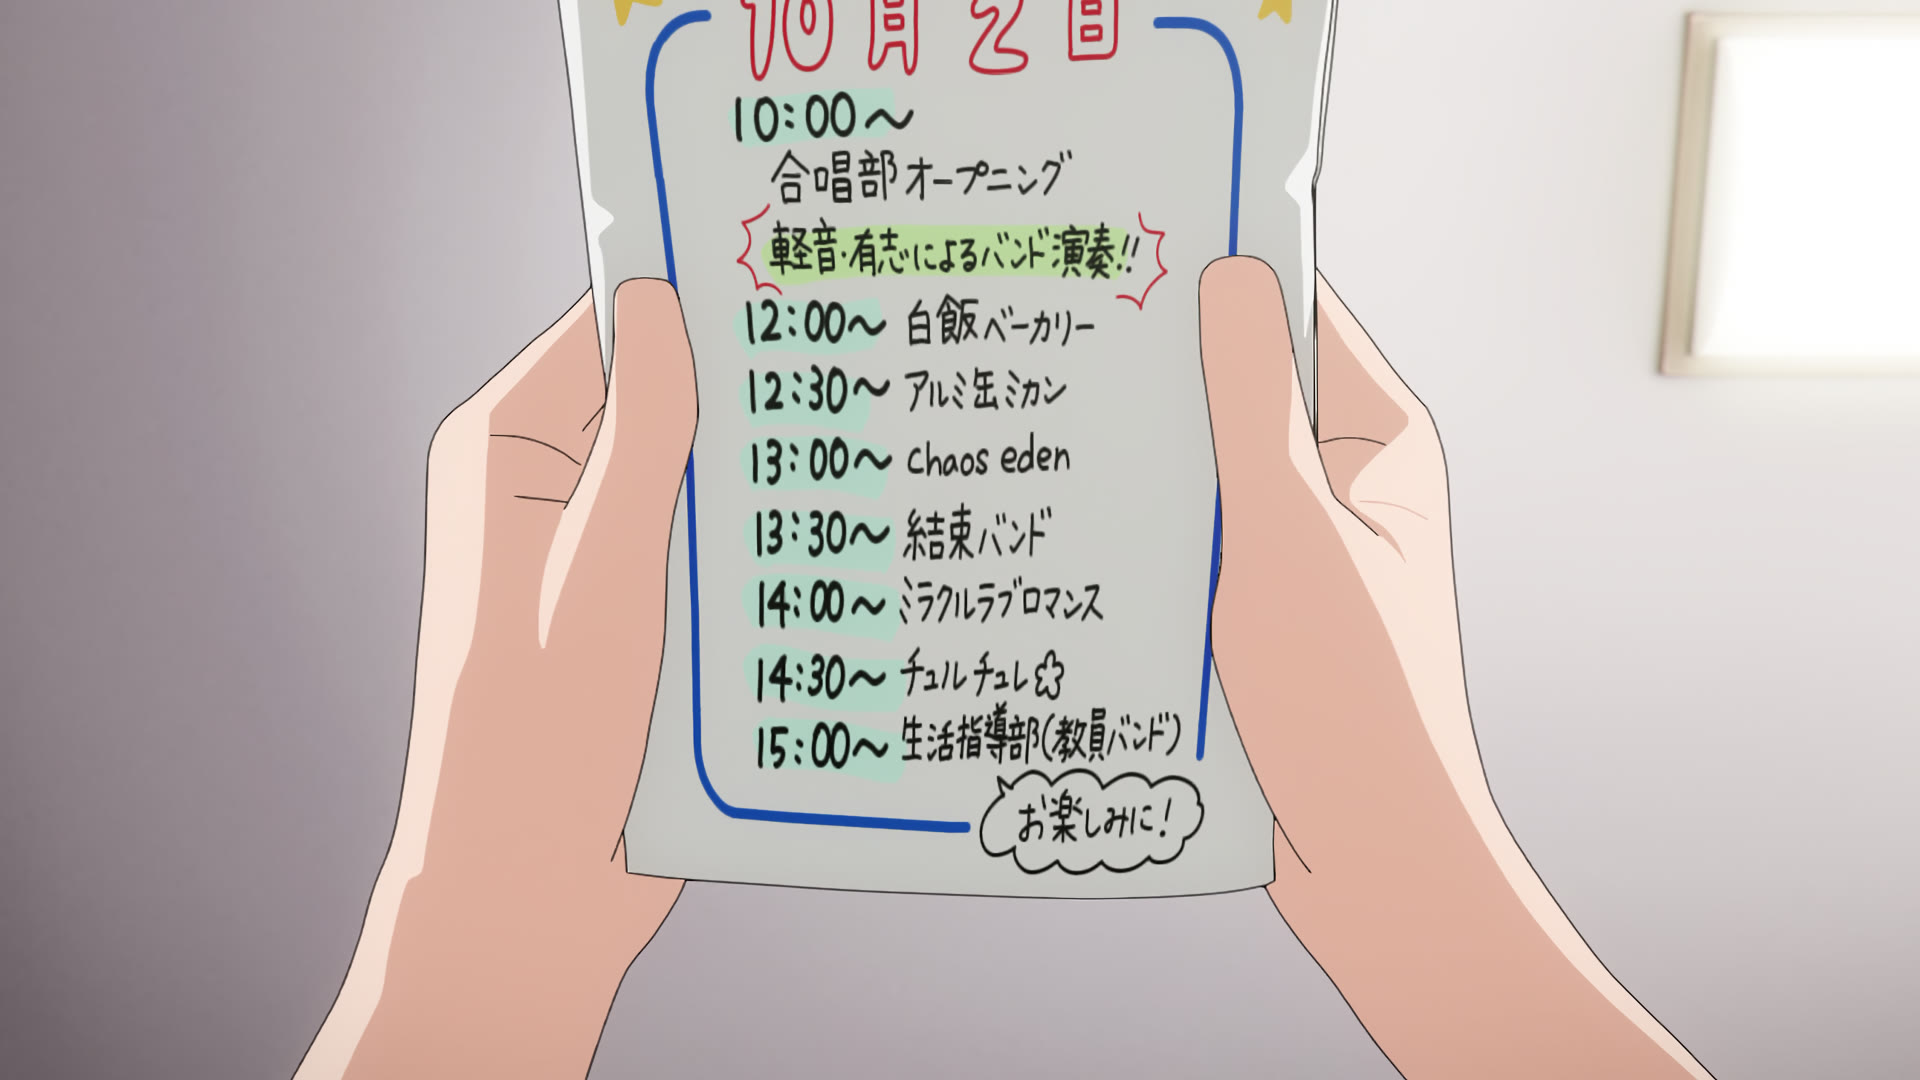 10月2日
10:00〜
合唱部オープニング
軽音・有志によるバンド演奏!!
12:00〜 白飯ベーカリー
12:30〜 アルミ缶ミカン
13:00〜 chaos eden
13:30〜 結束バンド
14:00〜 ミラクルラブロマンス
14:30〜 チュルチュレ
15:00〜 生活指導部(教員バンド)
お楽しみに!